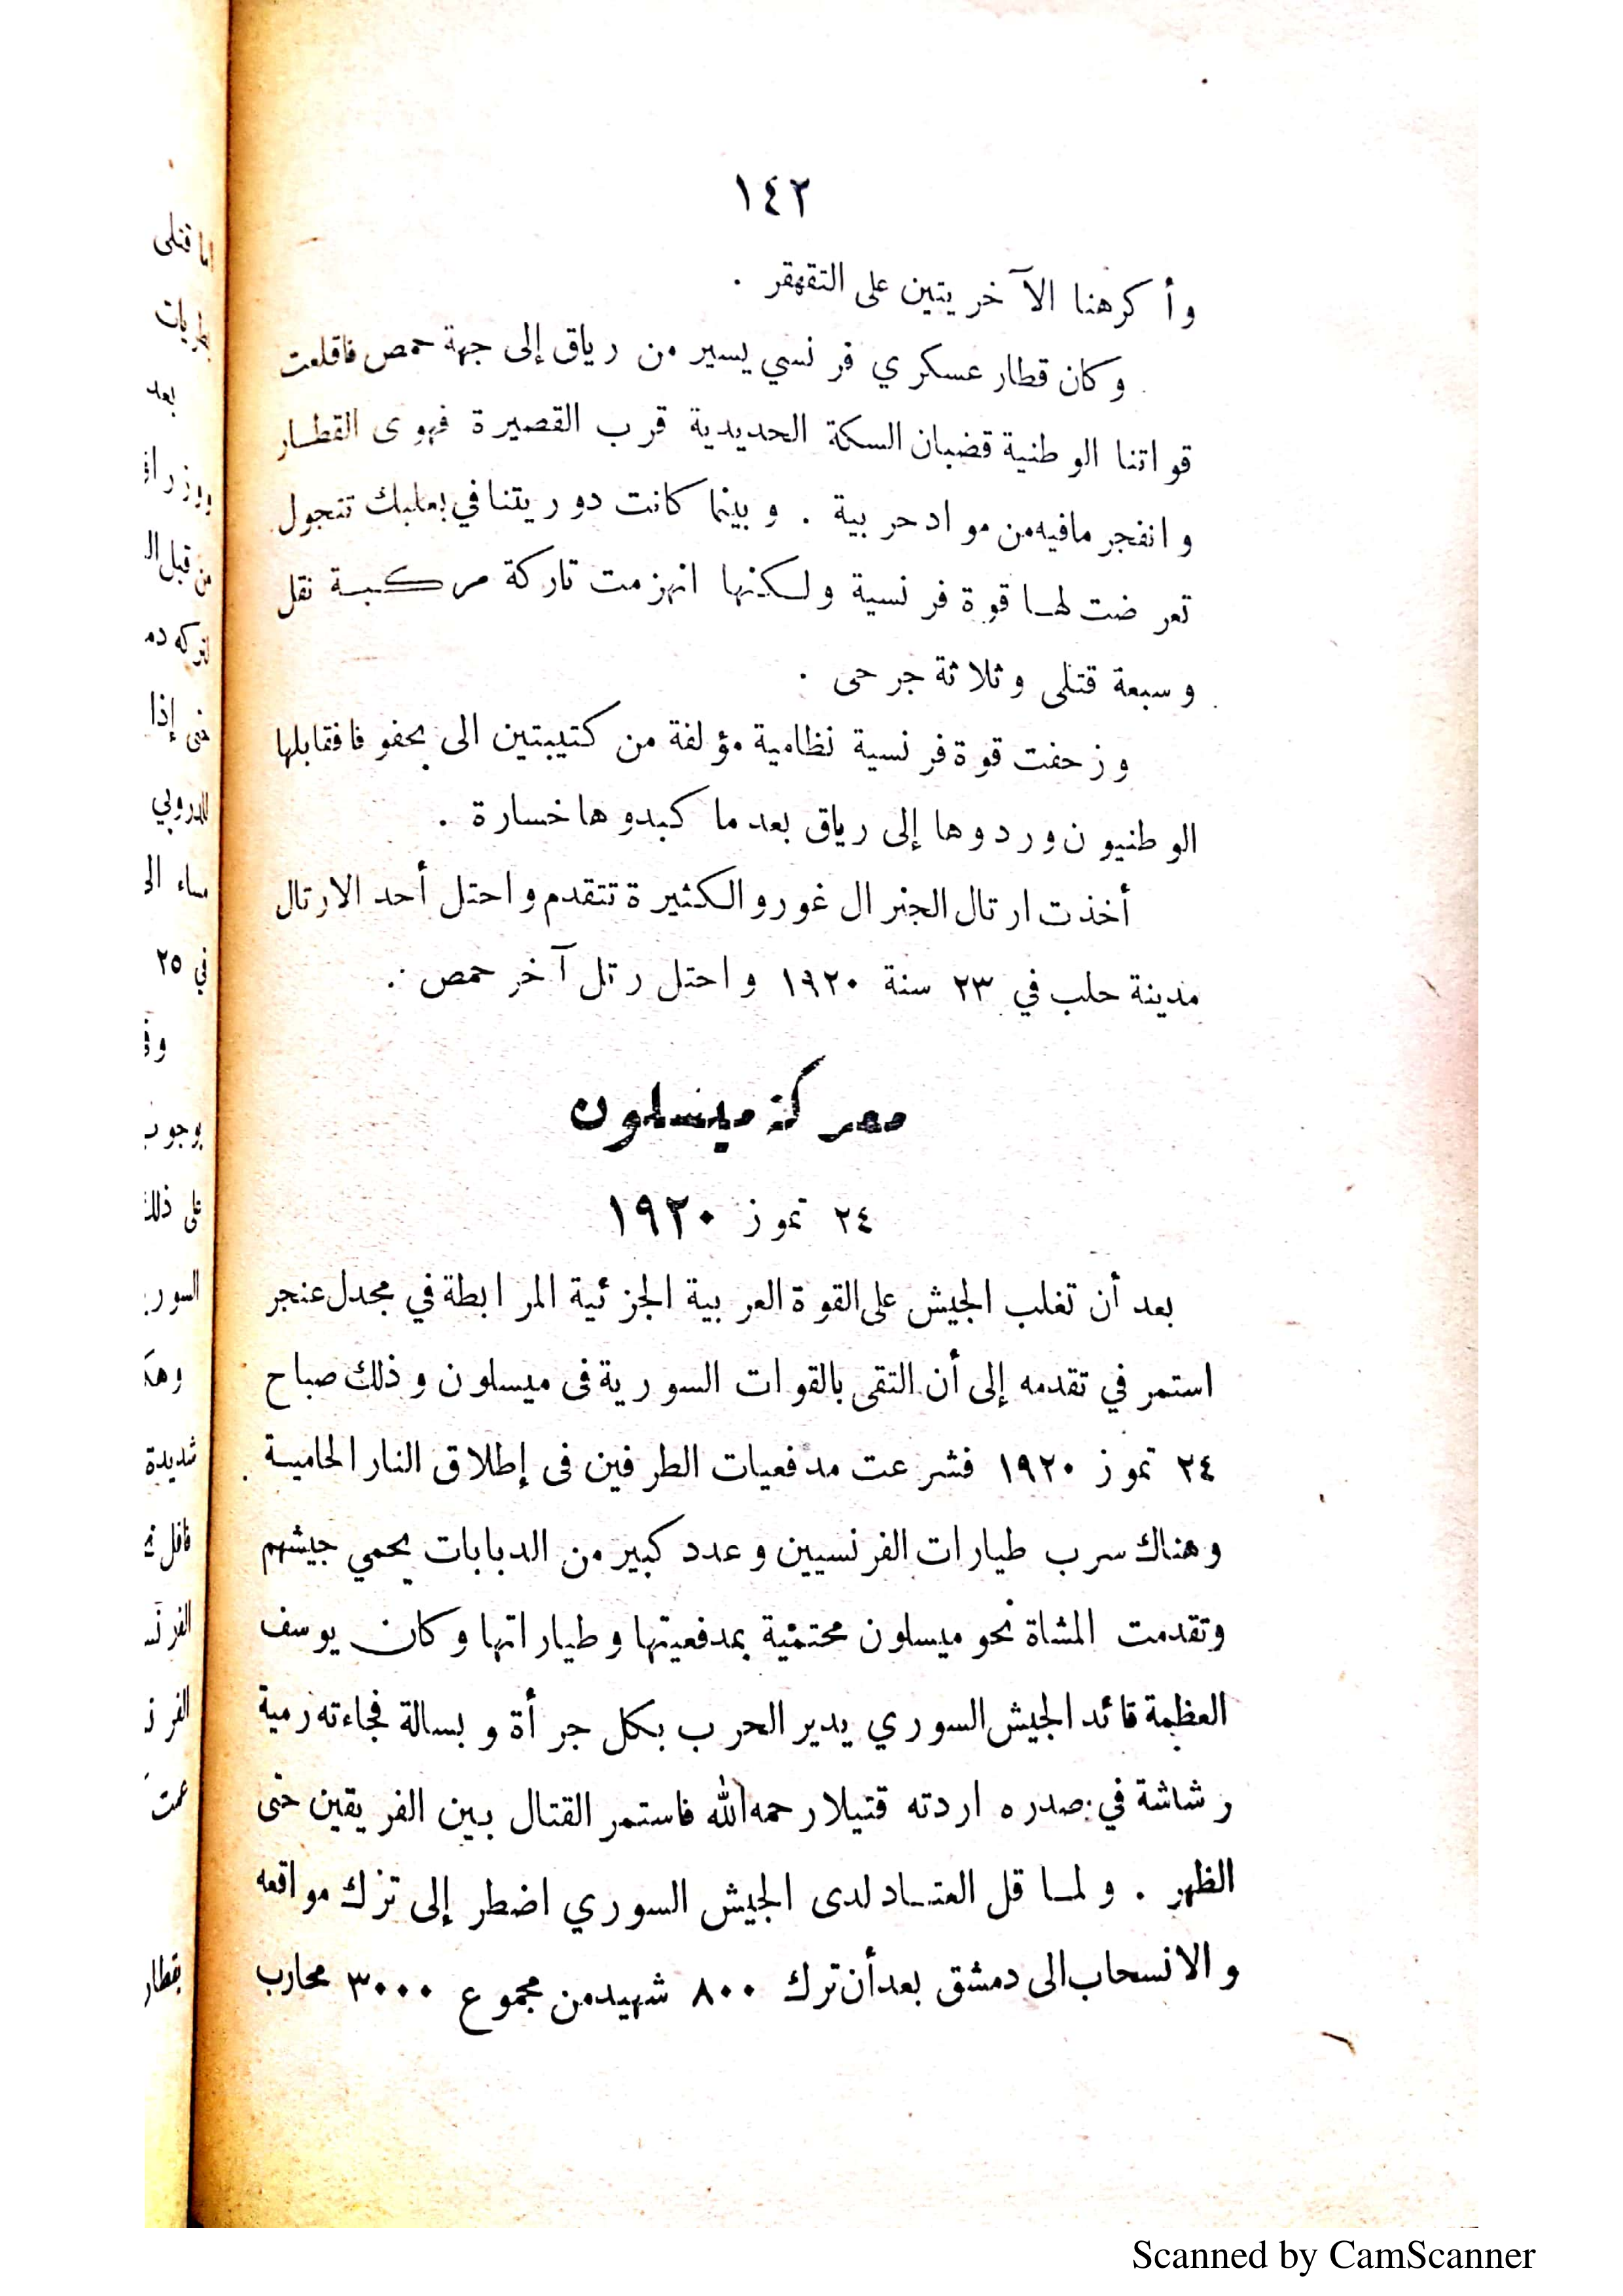 ١٤٢
وأكرهنا الآخريتين على التقهقر .
وكان قطار عسكري فرنسي يسير من رياق إلى جهة حمص فاقلعت
قواتنا الوطنية قضبان السكة الحديدية قرب القصيرة فهوى القطار
وانفجر مافيه من مواد حربية . وبينما كانت دوريتنا في بعلبك تتجول
تعرضت لها قوة فرنسية ولكنها انهزمت تاركة مركبة نقل
وسبعة قتلى وثلاثة جرحى .
وزحفت قوة فرنسية نظامية مؤلفة من كتيبتين الى يحفوفا فقابلها
الوطنيون وردوها إلى رياق بعد ما كبدوها خسارة .
أخذت ارتال الجنرال غورو الكثيرة تتقدم واحتل أحد الارتال
مدينة حلب في ٢٣ سنة ١٩٢٠ واحتل رتل آخر حمص .
معركة ميسلون
٢٤ تموز ١٩٢٠
بعد أن تغلب الجيش على القوة العربية الجزئية المرابطة في مجدل عنجر
استمر في تقدمه إلى أن التقى بالقوات السورية في ميسلون وذلك صباح
٢٤ تموز ١٩٢٠ فشرعت مدفعيات الطرفين في إطلاق النار الحامية
وهناك سرب طيارات الفرنسيين وعدد كبير من الدبابات يحمي جيشهم
وتقدمت المشاة نحو ميسلون محتمية بمدفعيتها وطياراتها وكان يوسف
العظمة قائد الجيش السوري يدير الحرب بكل جرأة وبسالة فجاءته رمية
رشاشة في صدره اردته قتيلا رحمه الله فاستمر القتال بين الفريقين حتى
الظهر . ولما قل العتاد لدى الجيش السوري اضطر إلى ترك مواقعه
والانسحاب الى دمشق بعد أن ترك ٨٠٠ شهيد من مجموع ٣٠٠٠ محارب
Scanned by CamScanner